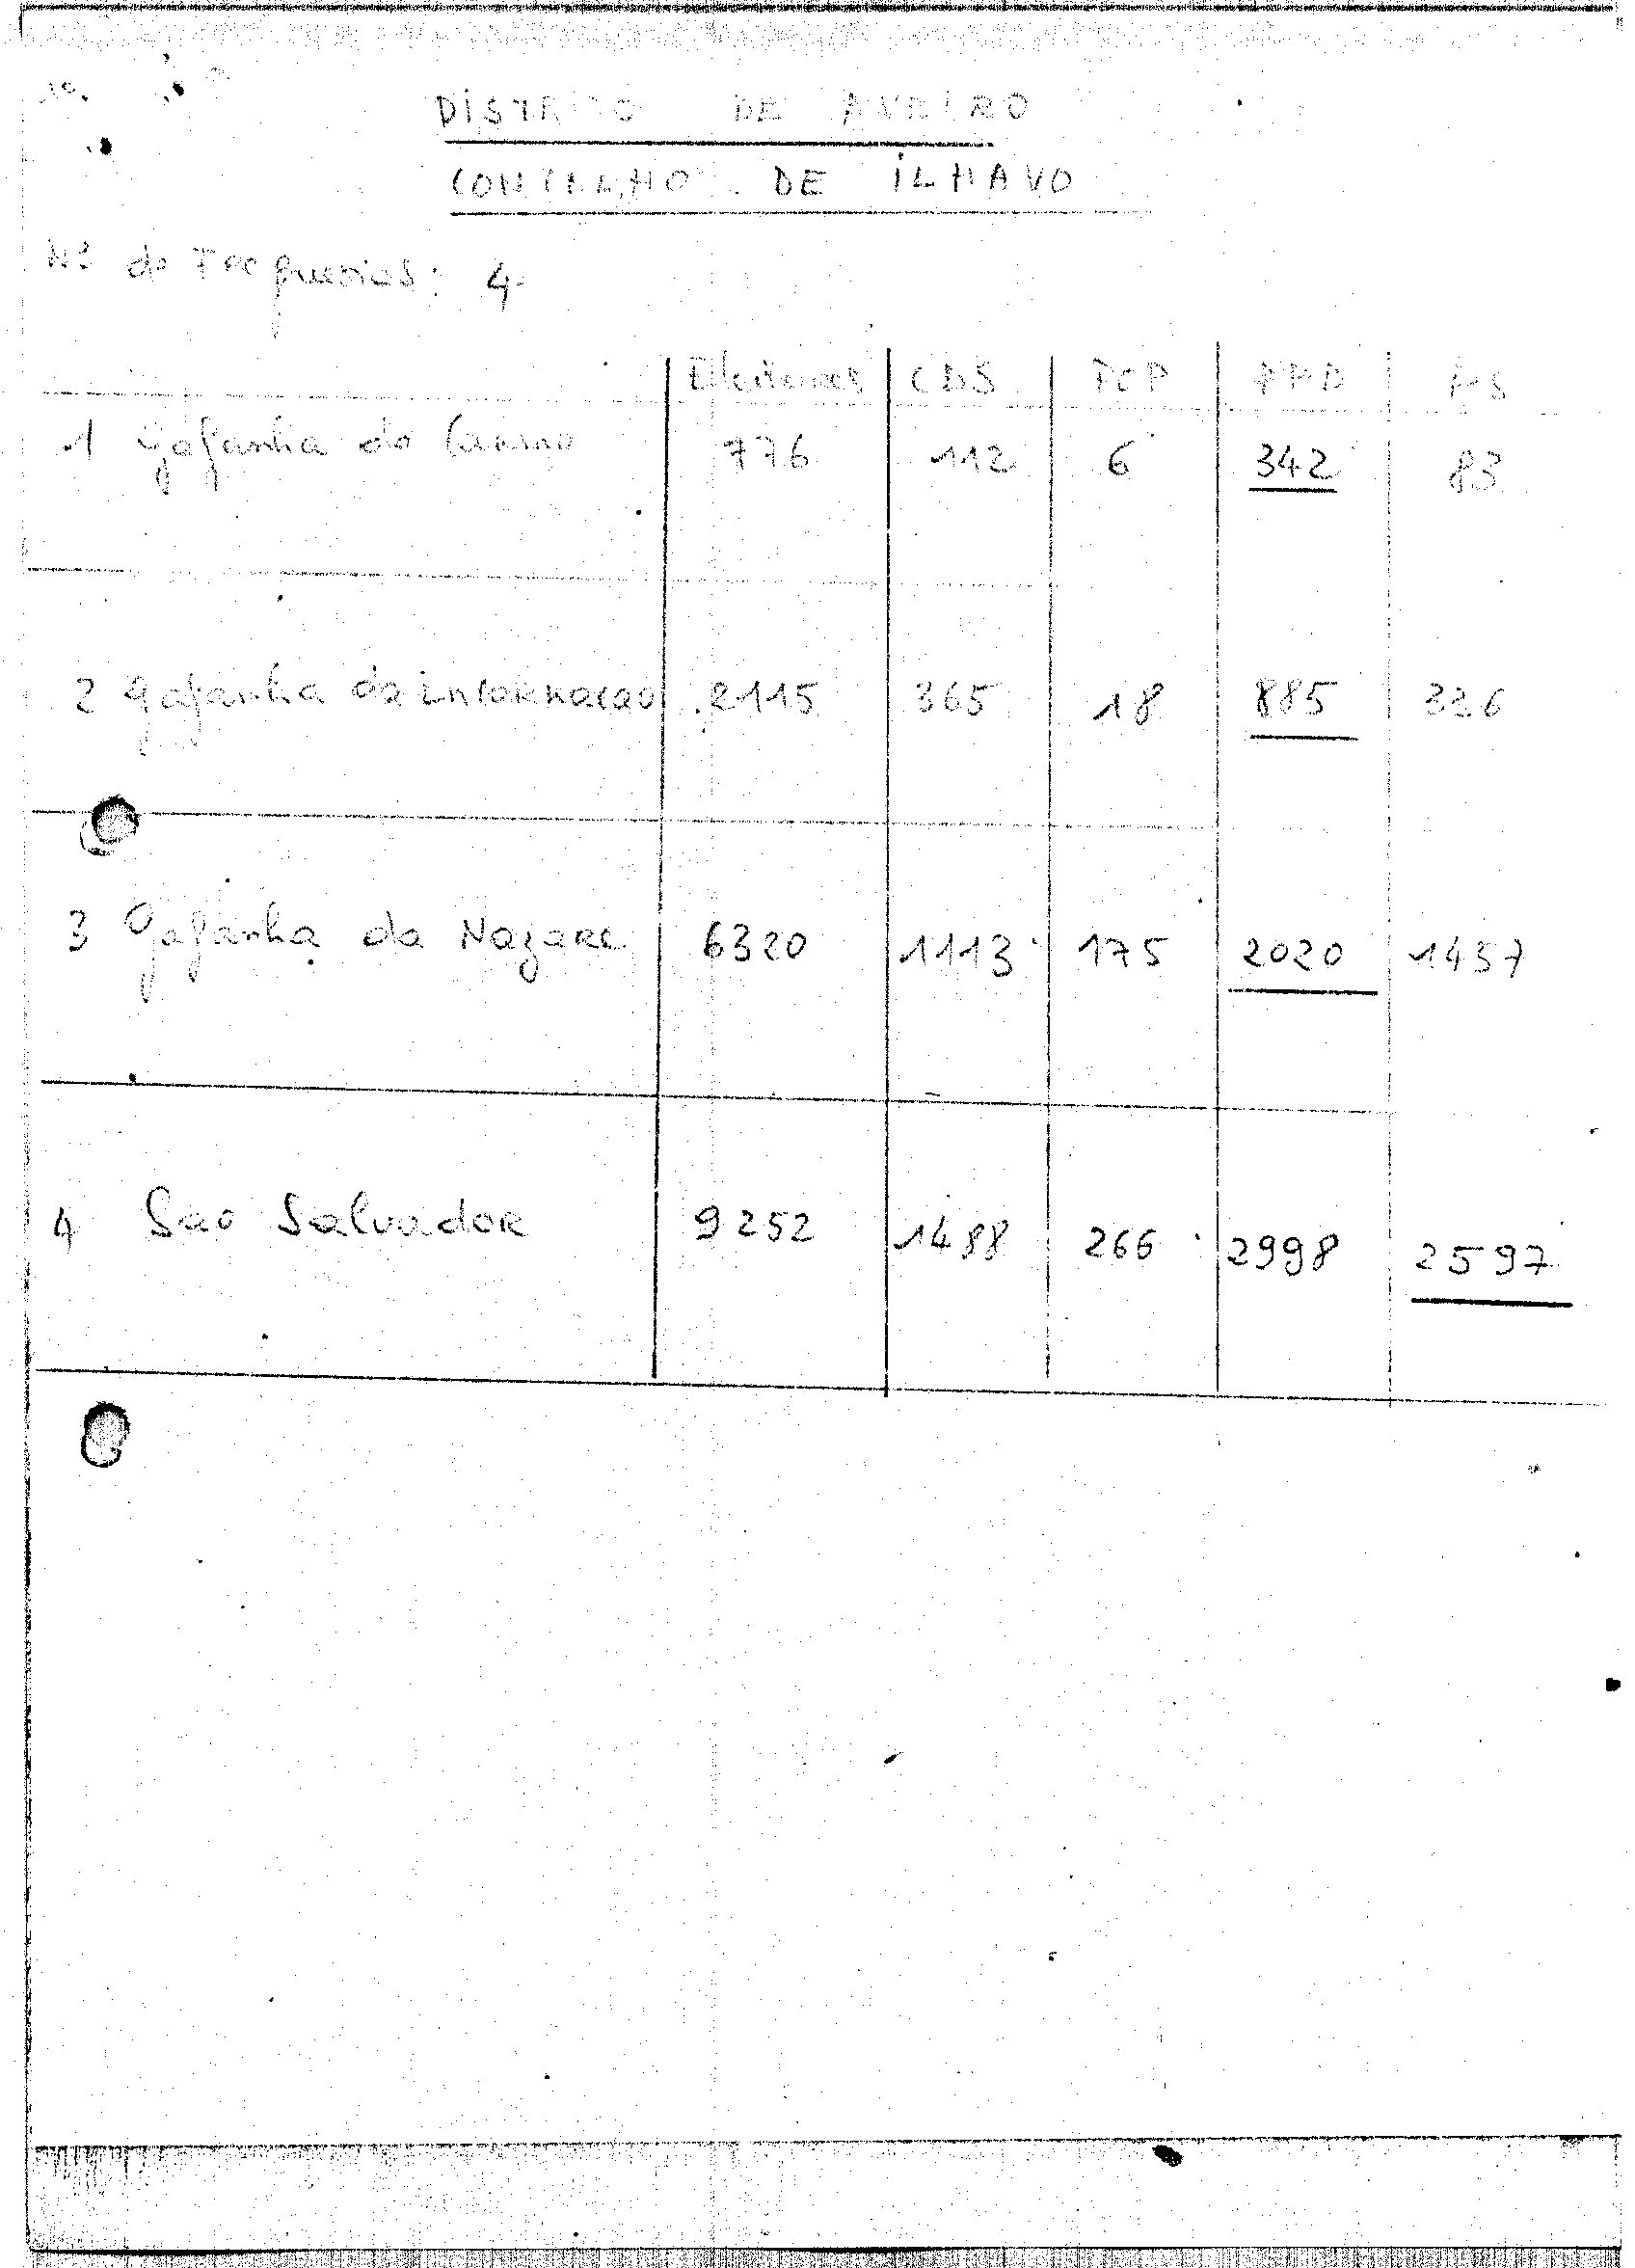 DISTRITO DE AVEIRO
CONCELHO DE ILHAVO
Nº de Freguesias: 4
Eleitores CDS PCP PPD PS
1 Gafanha do Carmo 776 112 6 342 83
2 Gafanha da incarnacao 2115 365 18 885 326
3 Gafanha da Nazare 6320 1113 175 2020 1457
4 Sao Salvador 9252 1488 266 2998 2597